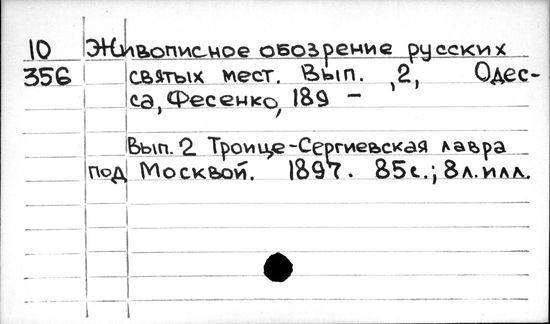 10 Живописное обозрение русских
356 святых мест. Вып. ,2, Одес-
са, Фесенко, 189 –
Вып. 2 Троице-Сергиевская лавра
под Москвой. 1897. 85с.; 8л. илл.